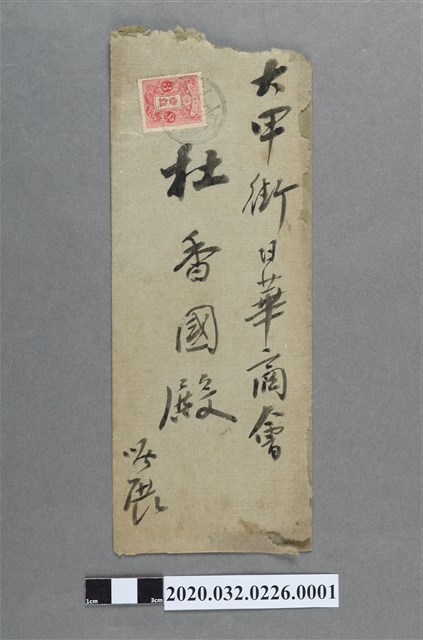 大甲街日華商會
杜香國殿
1cm 3cm
2020.032.0226.0001